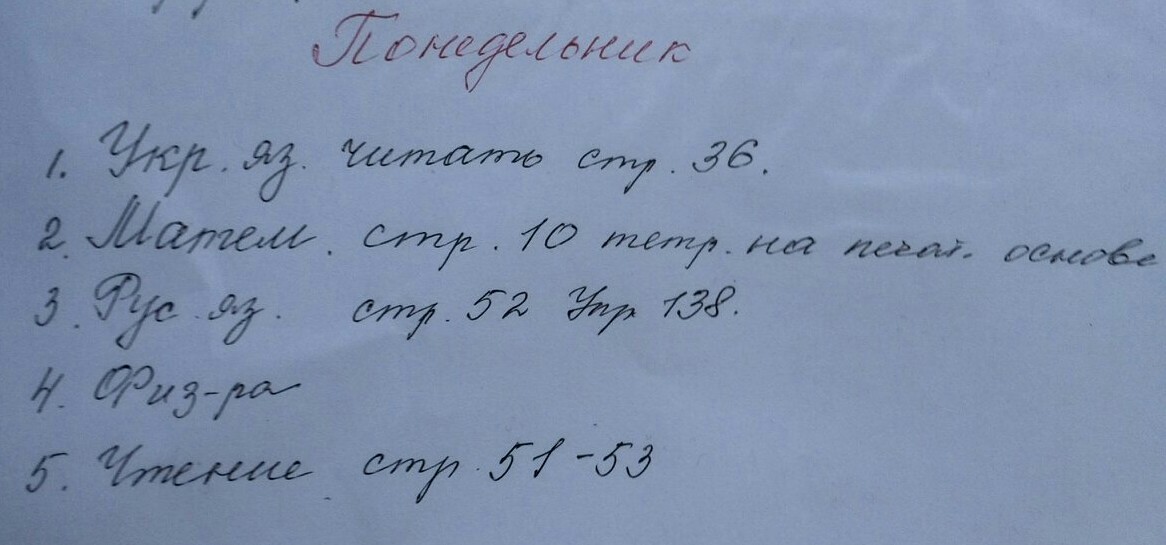 Понедельник
1. Укр. яз. читать стр. 36.
2. Матем. стр. 10 тетр. на печат. основе
3. Рус. яз. стр. 52 Упр. 138.
4. Физ-ра
5. Чтение стр. 51-53